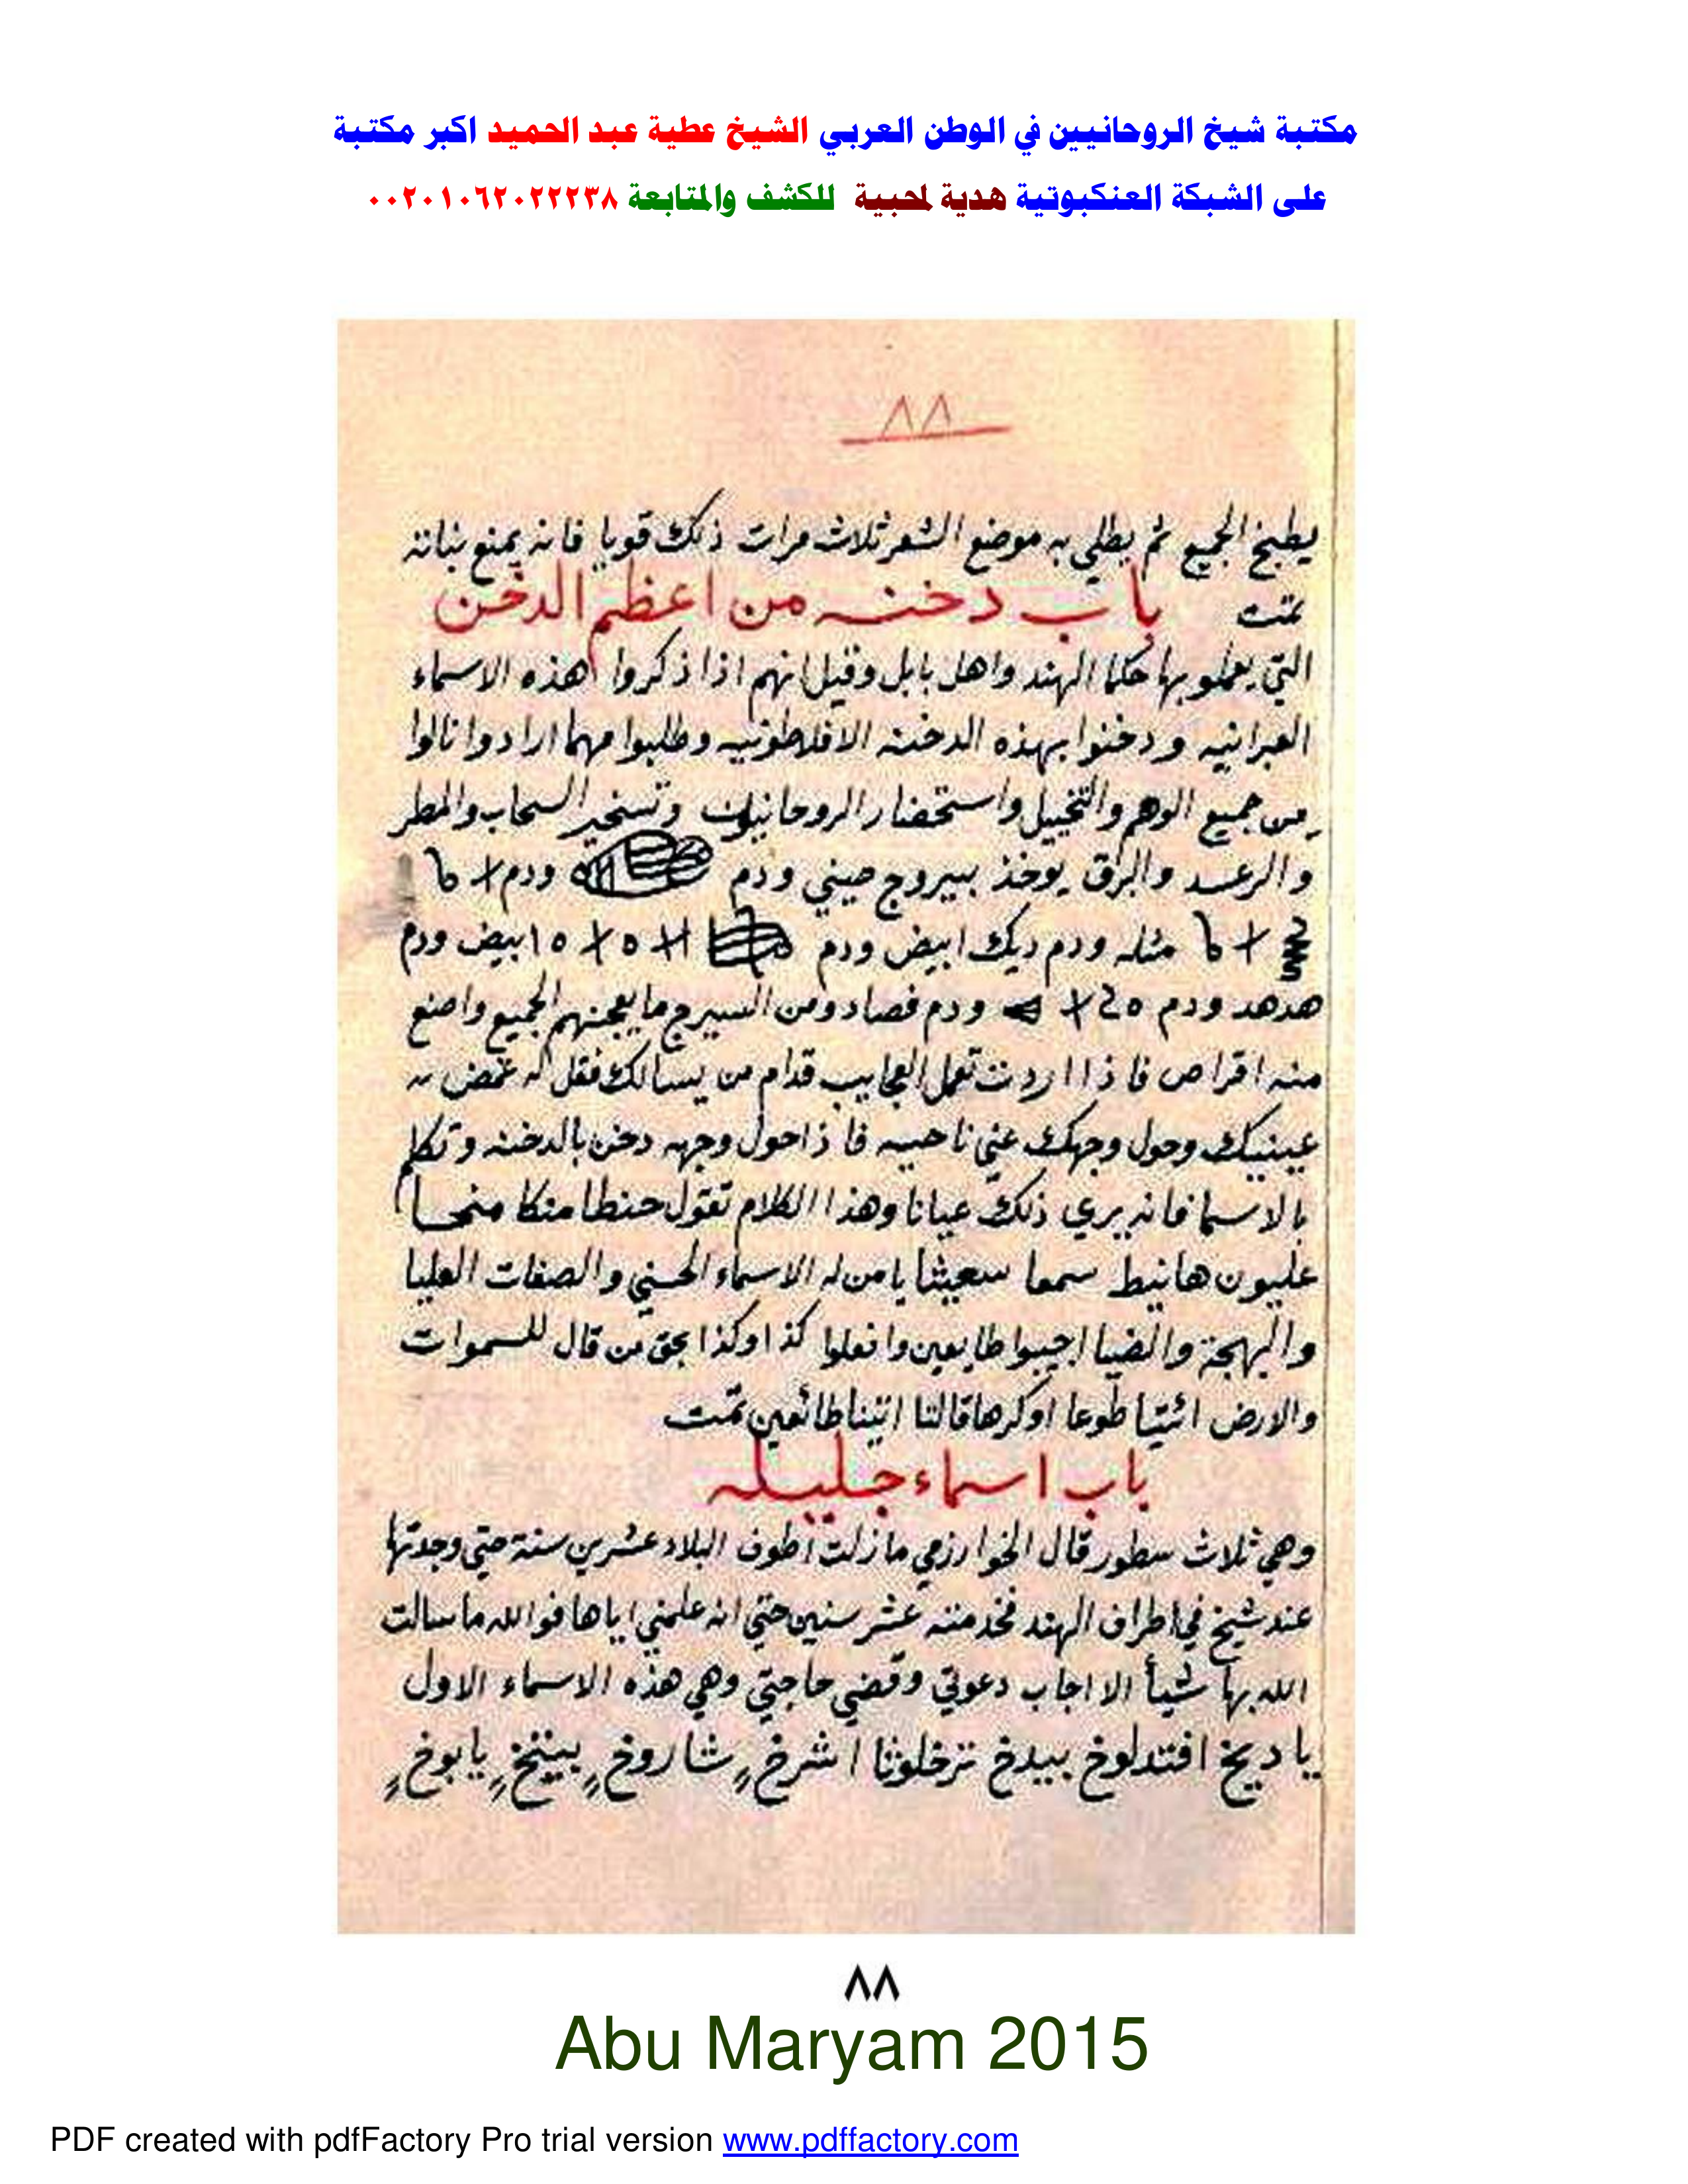 مكتبة شيخ الروحانيين في الوطن العربي الشيخ عطية عبد الحميد اكبر مكتبة
على الشبكة العنكبوتية هدية لمحبية للكشف والمتابعة ٠٠٢٠١٠٦٢٠٢٢٢٣٨
٨٨
يطبخ الجميع ثم يطلي به موضع الشعر ثلاث مرات ذلك قويا فانه يمنع نباته
تمت باب دخنه من اعظم الدخن
التي يعملو بها حكما الهند واهل بابل وقيل انهم اذا ذكروا هذه الاسماء
العبرانيه ودخنوا بهذه الدخنه الافلاطونيه وطلبوا مهما ارادوا نالوا
من جميع الوهم والتخييل واستحضار الروحانيات وتسخير السحاب والمطر
والرعد والبرق يوخذ بيروج صيني ودم ودم
مثله ودم ديك ابيض ودم ابيض ودم
هدهد ودم ودم فصاد ومن السيرج ما يعجنهم الجميع واصنع
منه اقراص فاذا اردت تعمل العجايب قدام من يسالك فقل له غمض
عينيك وحول وجهك عني ناحيه فاذا حول وجهه دخن بالدخنه وتكلم
بالاسما فانه يري ذلك عيانا وهذا الكلام تقول حنطا منكا منحا
عليون هانيط سمعا سعيثا يا من له الاسماء الحسني والصفات العليا
والبهجة والضيا اجيبوا طايعين وافعلوا كذا وكذا بحق من قال للسموات
والارض ائتيا طوعا اوكرها قالتا اتينا طائعين تمت
باب اسماء جليله
وهي ثلاث سطور قال الخوارزمي ما زلت اطوف البلاد عشرين سنة حتي وجدتها
عند شيخ في اطراف الهند فخدمته عشر سنين حتي انه علمني اياها فوالله ما سالت
الله بها شيأ الا اجاب دعوتي وقضي حاجتي وهي هذه الاسماء الاول
يا ديخ افتدلوخ بيدخ نزخلوثا اشرخ شاروخ بينخ يابوخ
٨٨
Abu Maryam 2015
PDF created with pdfFactory Pro trial version www.pdffactory.com